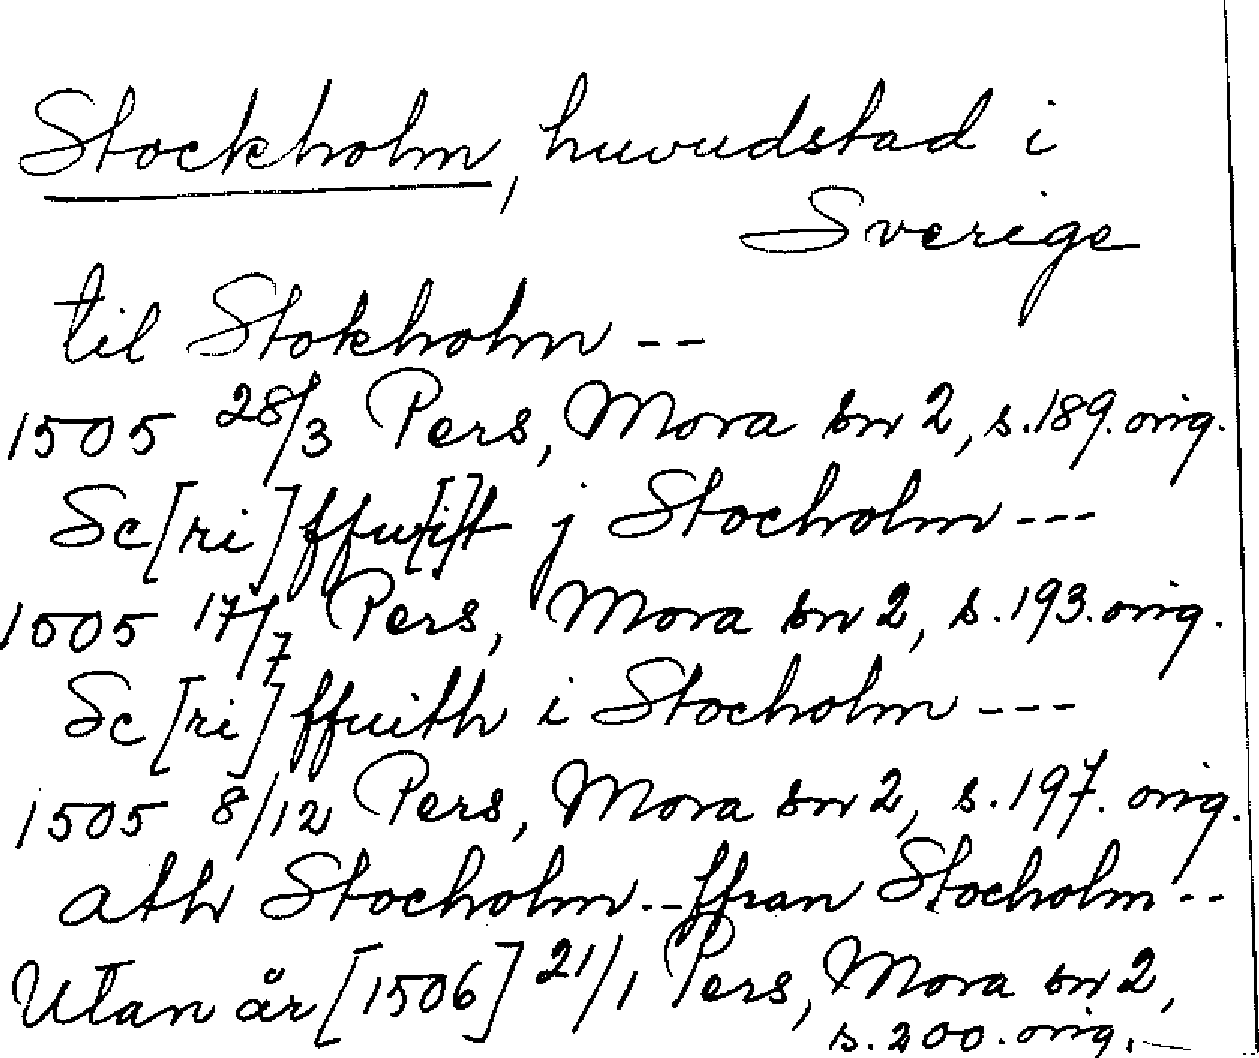 Stockholm, huvudstad i
Sverige
til Stokholm --
1505 28/3 Pers, Mora sn 2, s.189. orig.
Sc[ri]ffu[i]t j Stocholm ---
1505 17/7 Pers, Mora sn 2, s.193. orig.
Sc[ri]ffuith i Stocholm ---
1505 8/12 Pers, Mora sn 2, s.197. orig.
ath Stocholm -- ffran Stocholm --
Utan år [1506] 21/1 Pers, Mora sn 2,
s.200. orig.